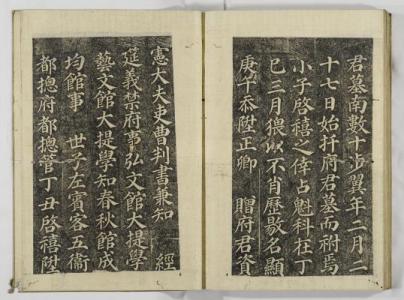 君墓南數十步翼年二月二
十七日始祔府君墓而祔焉
小子啓禧之倖占魁科在丁
巳三月猥以不肖歷敭名顯
庚午忝陞正卿 贈府君資
憲大夫吏曹判書兼知 經
筵義禁府事弘文館大提學
藝文館大提學知春秋館成
均館事 世子左賓客五衛
都摠府都摠管丁丑啓禧陞